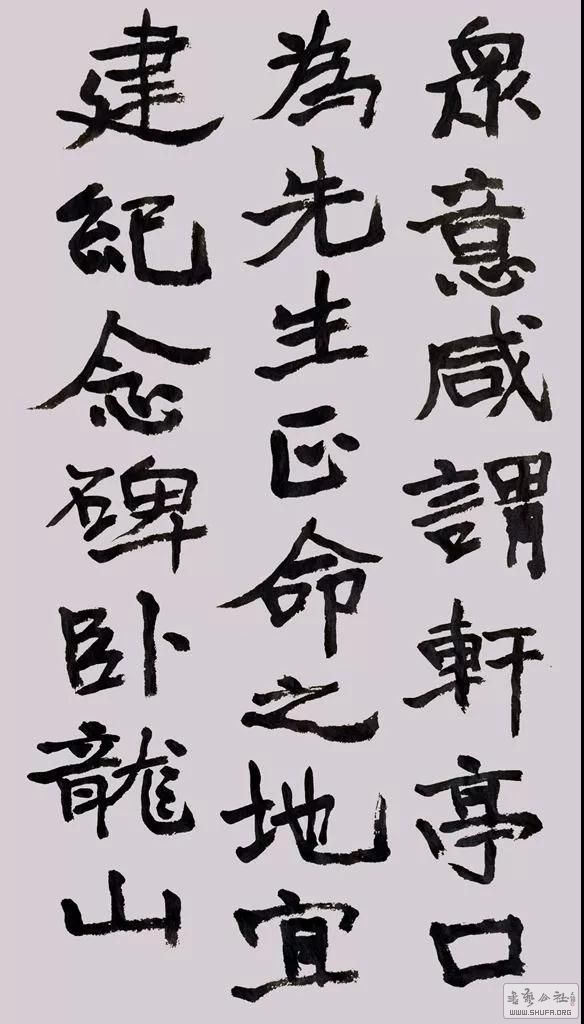 眾意咸謂軒亭口
為先生正命之地宜
建紀念碑卧龍山
書藝公社
WWW.SHUFA.ORG